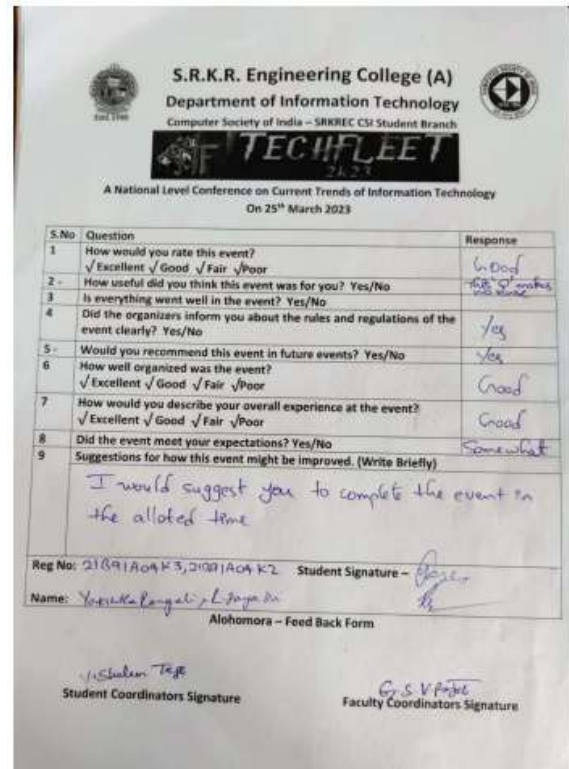 ESTD 1980
S.R.K.R. Engineering College (A)
Department of Information Technology
Computer Society of India – SRKREC CSI Student Branch
TECHFLEET
2k23
A National Level Conference on Current Trends of Information Technology
On 25th March 2023
S.No Question Response
1 How would you rate this event?
√Excellent √Good √Fair √Poor Good
2 - How useful did you think this event was for you? Yes/No This 'Q' makes no sense
3 Is everything went well in the event? Yes/No
4 Did the organizers inform you about the rules and regulations of the
event clearly? Yes/No Yes
5 - Would you recommend this event in future events? Yes/No Yes
6 How well organized was the event?
√Excellent √Good √Fair √Poor Good
7 How would you describe your overall experience at the event?
√Excellent √Good √Fair √Poor Good
8 Did the event meet your expectations? Yes/No Somewhat
9 Suggestions for how this event might be improved. (Write Briefly)
I would suggest you to complete the event in
the alloted time
Reg No: 21B91A04K3, 21B91A04K2 Student Signature –
Name:
Alohomora – Feed Back Form
Student Coordinators Signature Faculty Coordinators Signature